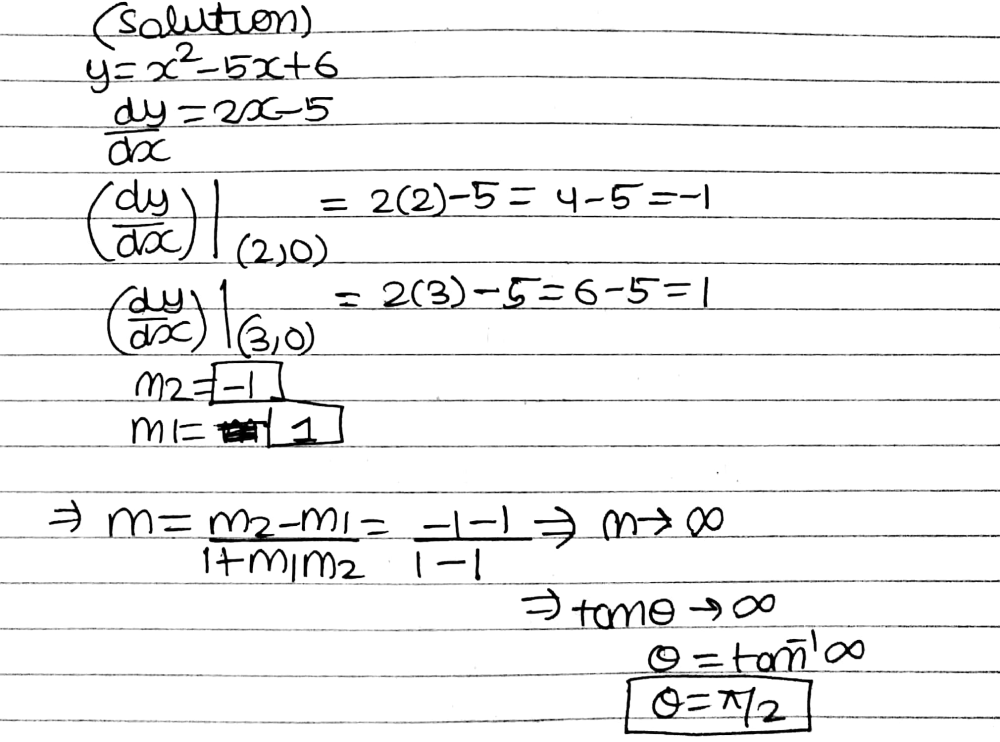 (Solution)
y = x² - 5x + 6
dy/dx = 2x - 5
(dy/dx)|(2,0) = 2(2) - 5 = 4 - 5 = -1
(dy/dx)|(3,0) = 2(3) - 5 = 6 - 5 = 1
m2 = -1
m1 = 1
⇒ m = (m2 - m1)/(1 + m1m2) = (-1 - 1)/(1 - 1) ⇒ m → ∞
⇒ tanθ → ∞
θ = tan⁻¹∞
θ = π/2